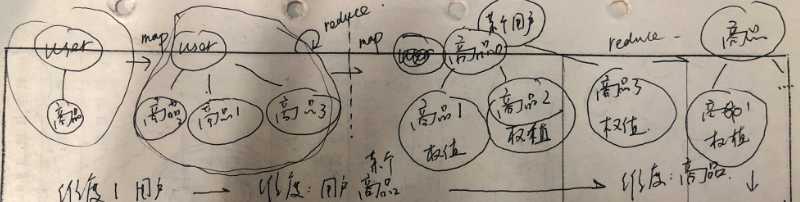 user map user reduce map 某个用户 商品 reduce 商品
商品 商品2 商品1 商品3 商品1 权值 商品2 权值 商品3 权值 权值
维度: 用户 → 维度: 用户 某个商品 → 维度: 商品